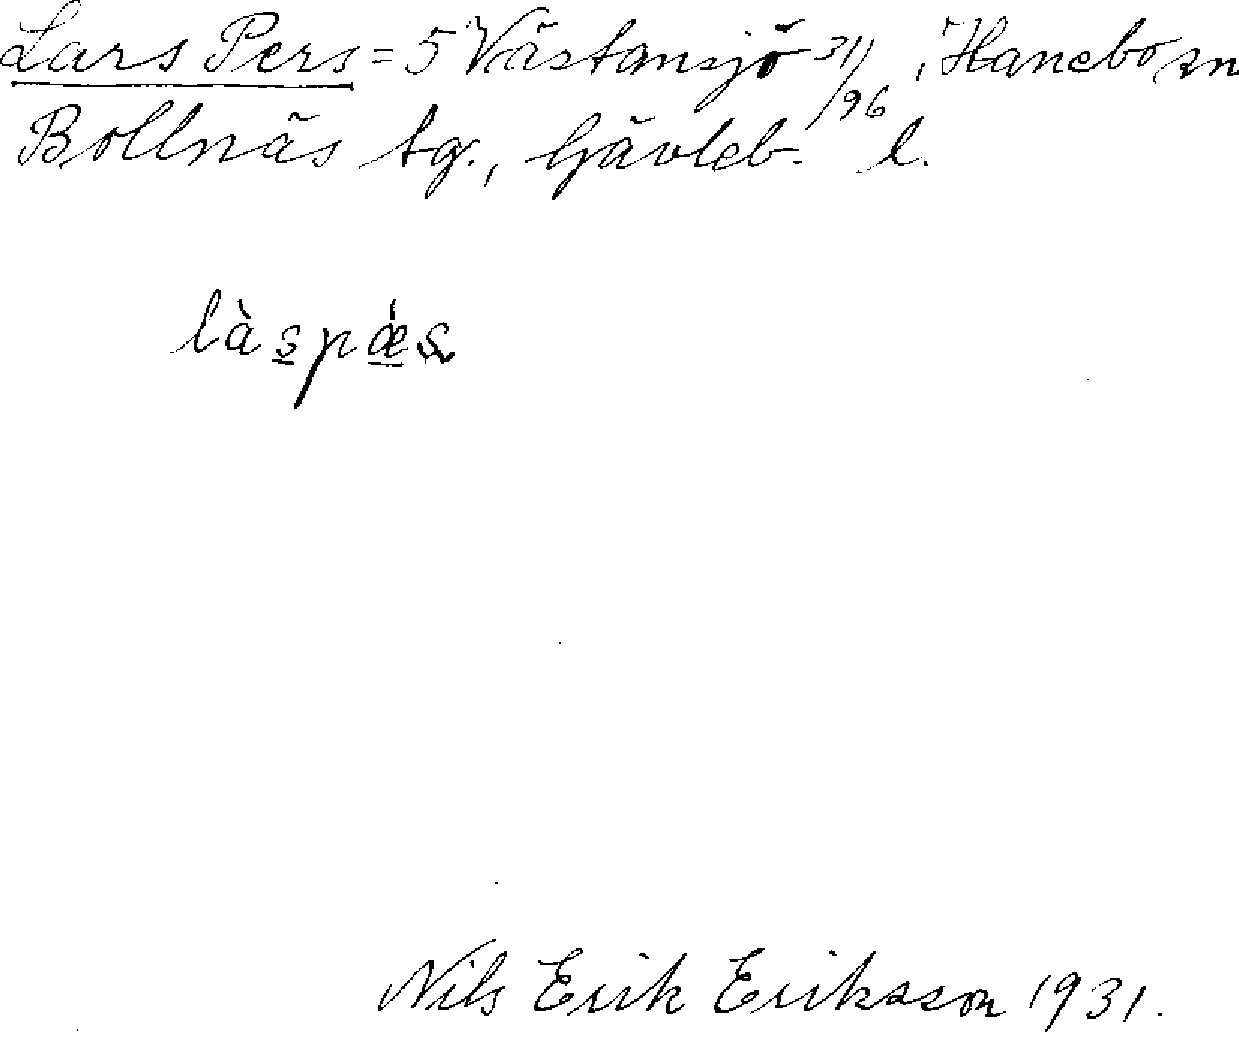 Lars Pers = 5 Västansjö 31/96, Hanebo sn
Bollnäs tg., Gävleb. l.
làspǽs
Nils Erik Eriksson 1931.